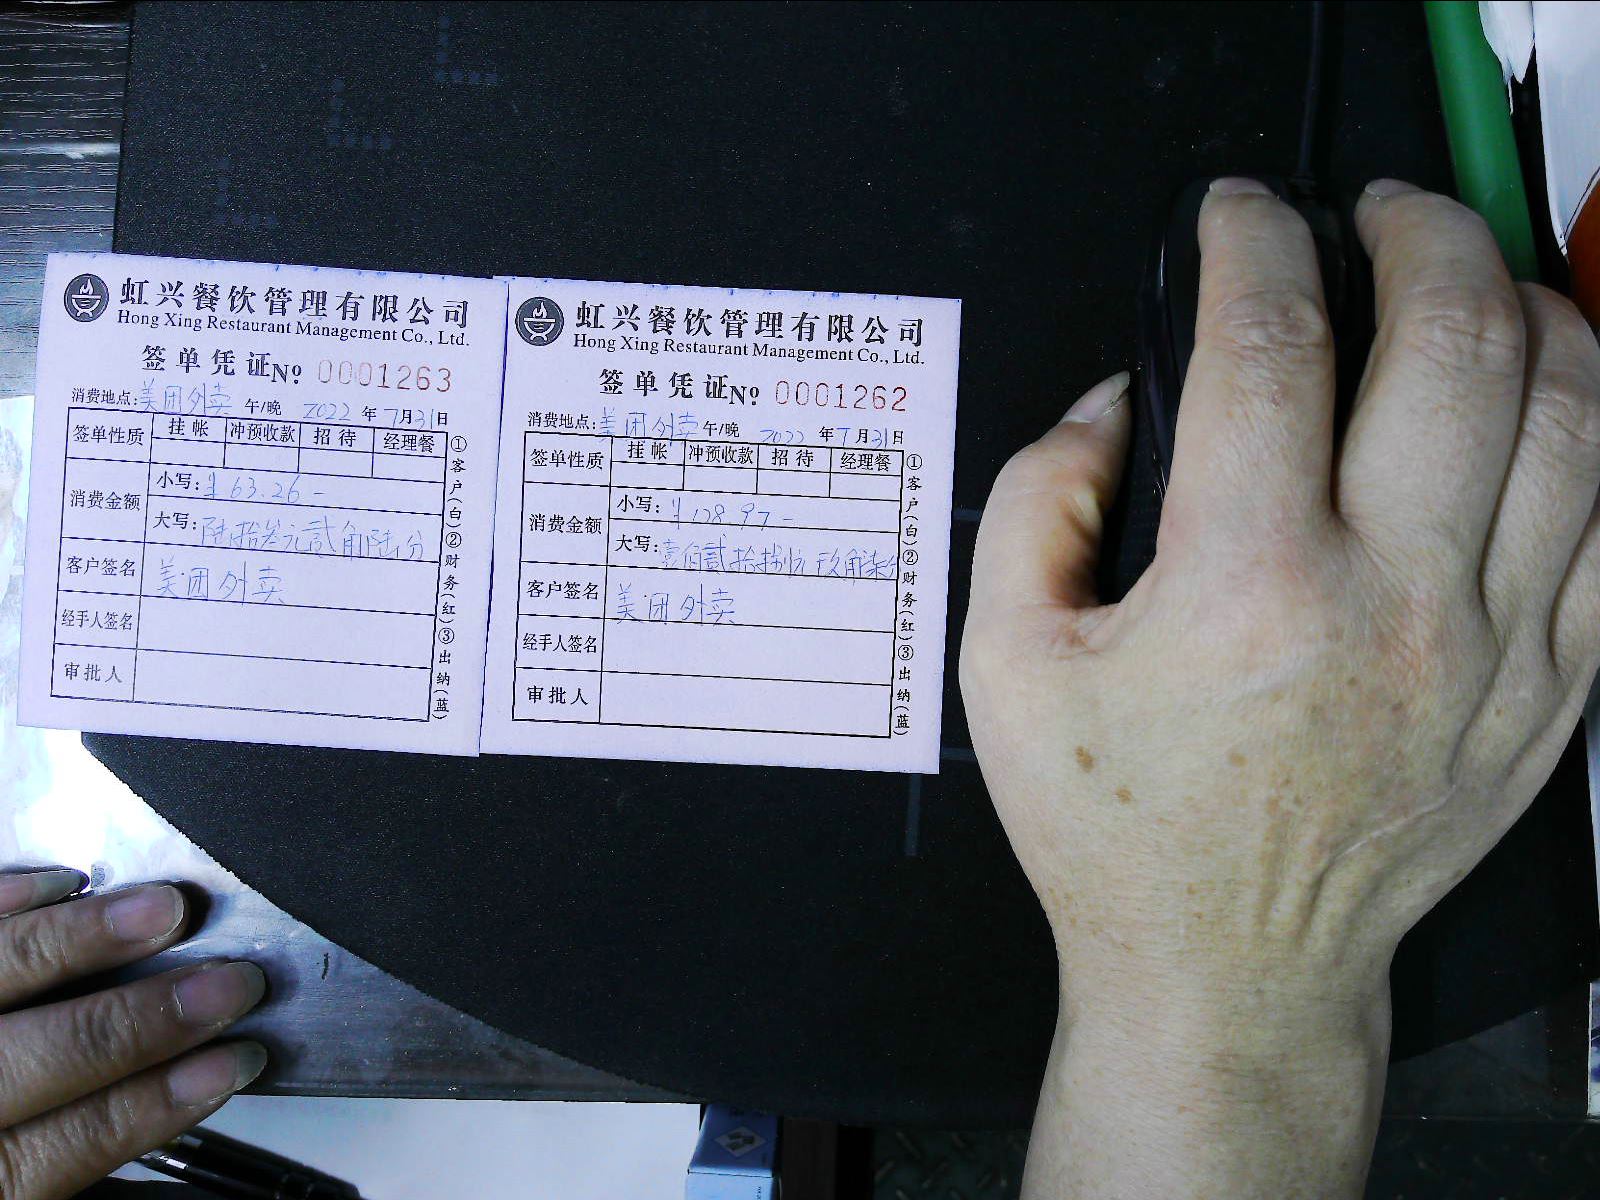 虹兴餐饮管理有限公司
Hong Xing Restaurant Management Co., Ltd.
签单凭证No. 0001263
消费地点:美团外卖 午/晚 2022年7月31日
签单性质 挂帐 冲预收款 招待 经理餐
消费金额 小写:¥63.26-
大写:陆拾叁元贰角陆分
客户签名 美团外卖
经手人签名
审批人
①客户(白)②财务(红)③出纳(蓝)
虹兴餐饮管理有限公司
Hong Xing Restaurant Management Co., Ltd.
签单凭证No. 0001262
消费地点:美团外卖 午/晚 2022年7月31日
签单性质 挂帐 冲预收款 招待 经理餐
消费金额 小写:¥128.97-
大写:壹佰贰拾捌元玖角柒分
客户签名 美团外卖
经手人签名
审批人
①客户(白)②财务(红)③出纳(蓝)